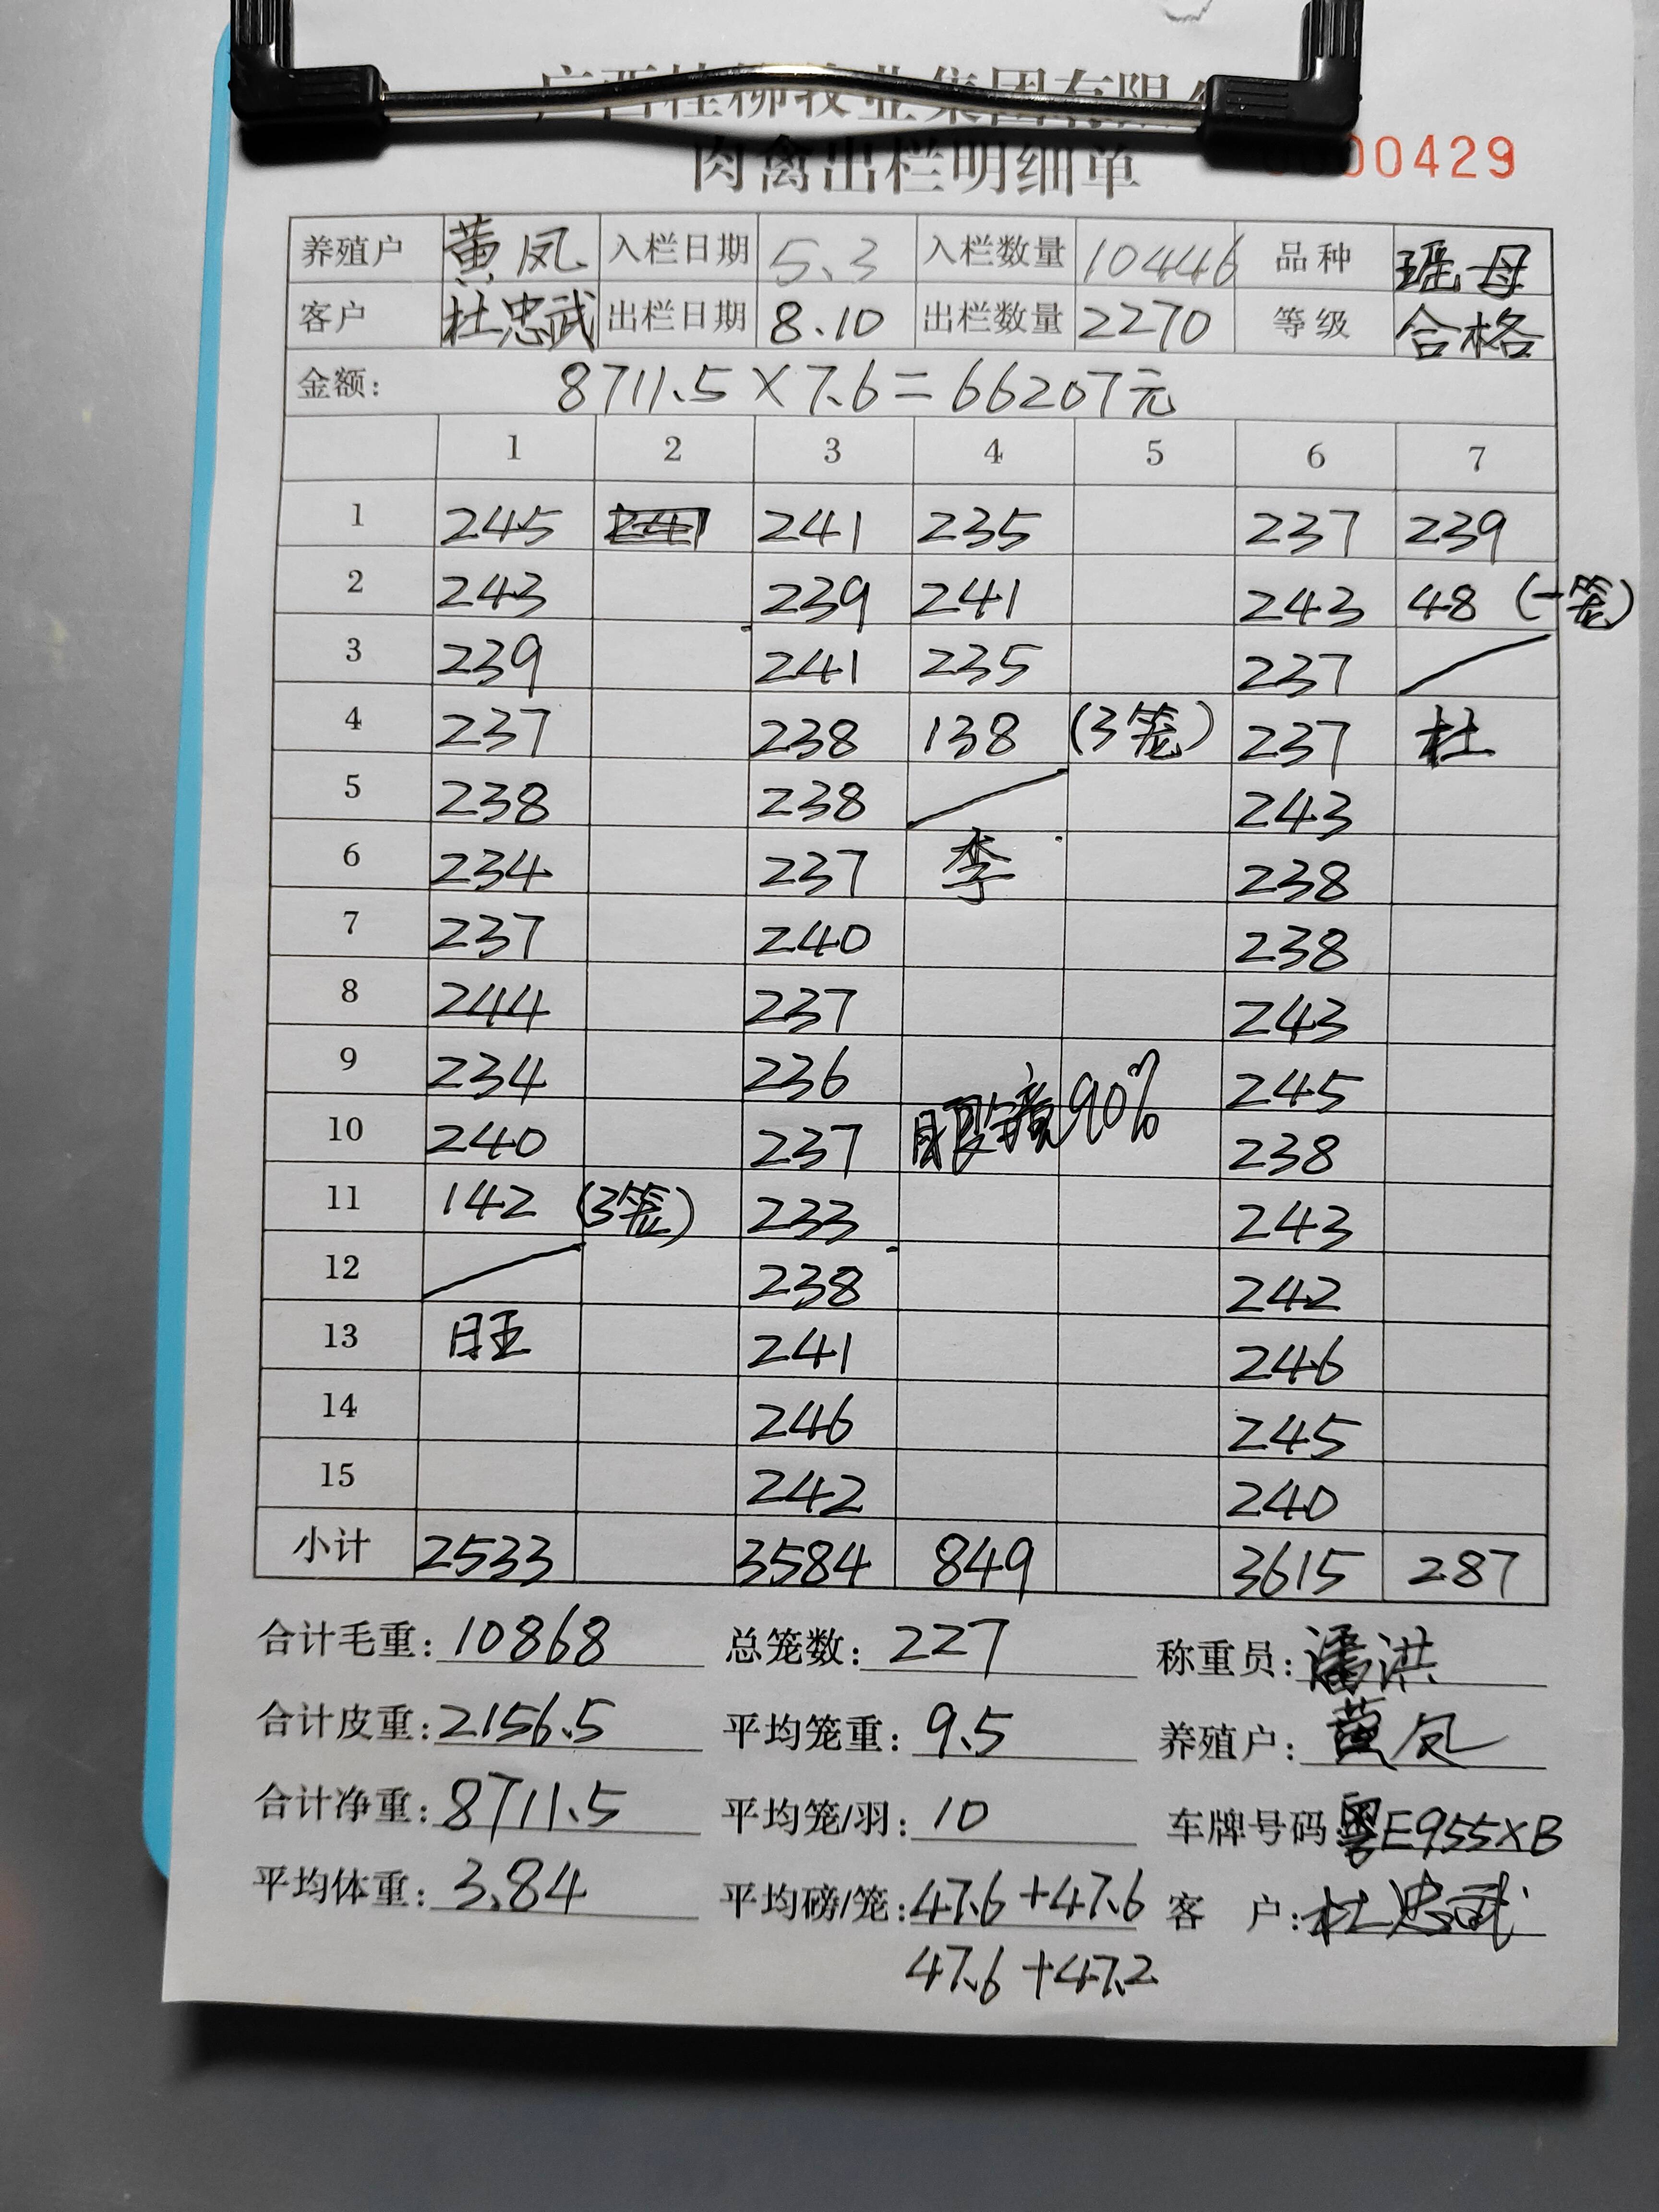 广西桂柳牧业集团有限公
肉禽出栏明细单 00429
养殖户 黄凤 入栏日期 5.3 入栏数量 10446 品种 瑶母
客户 杜忠武 出栏日期 8.10 出栏数量 2270 等级 合格
金额: 8711.5×7.6=66207元
1 2 3 4 5 6 7
1 245 241 241 235 237 239
2 243 239 241 243 48 (一笼)
3 239 241 235 237
4 237 238 138 (3笼) 237 杜
5 238 238 243
6 234 237 李 238
7 237 240 238
8 244 237 243
9 234 236 245
10 240 237 眼镜90% 238
11 142 (3笼) 233 243
12 238 242
13 旺 241 246
14 246 245
15 242 240
小计 2533 3584 849 3615 287
合计毛重: 10868 总笼数: 227 称重员: 潘洪
合计皮重: 2156.5 平均笼重: 9.5 养殖户: 黄凤
合计净重: 8711.5 平均笼/羽: 10 车牌号码 粤E955XB
平均体重: 3.84 平均磅/笼: 47.6+47.6 客 户: 杜忠武
47.6+47.2